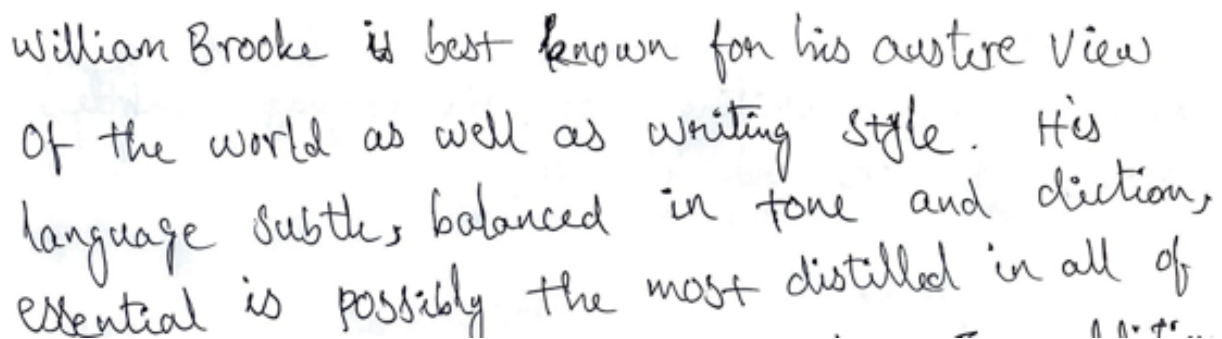 William Brooke is best known for his austere view
of the world as well as writing style. His
language subtle, balanced in tone and diction,
essential is possibly the most distilled in all of